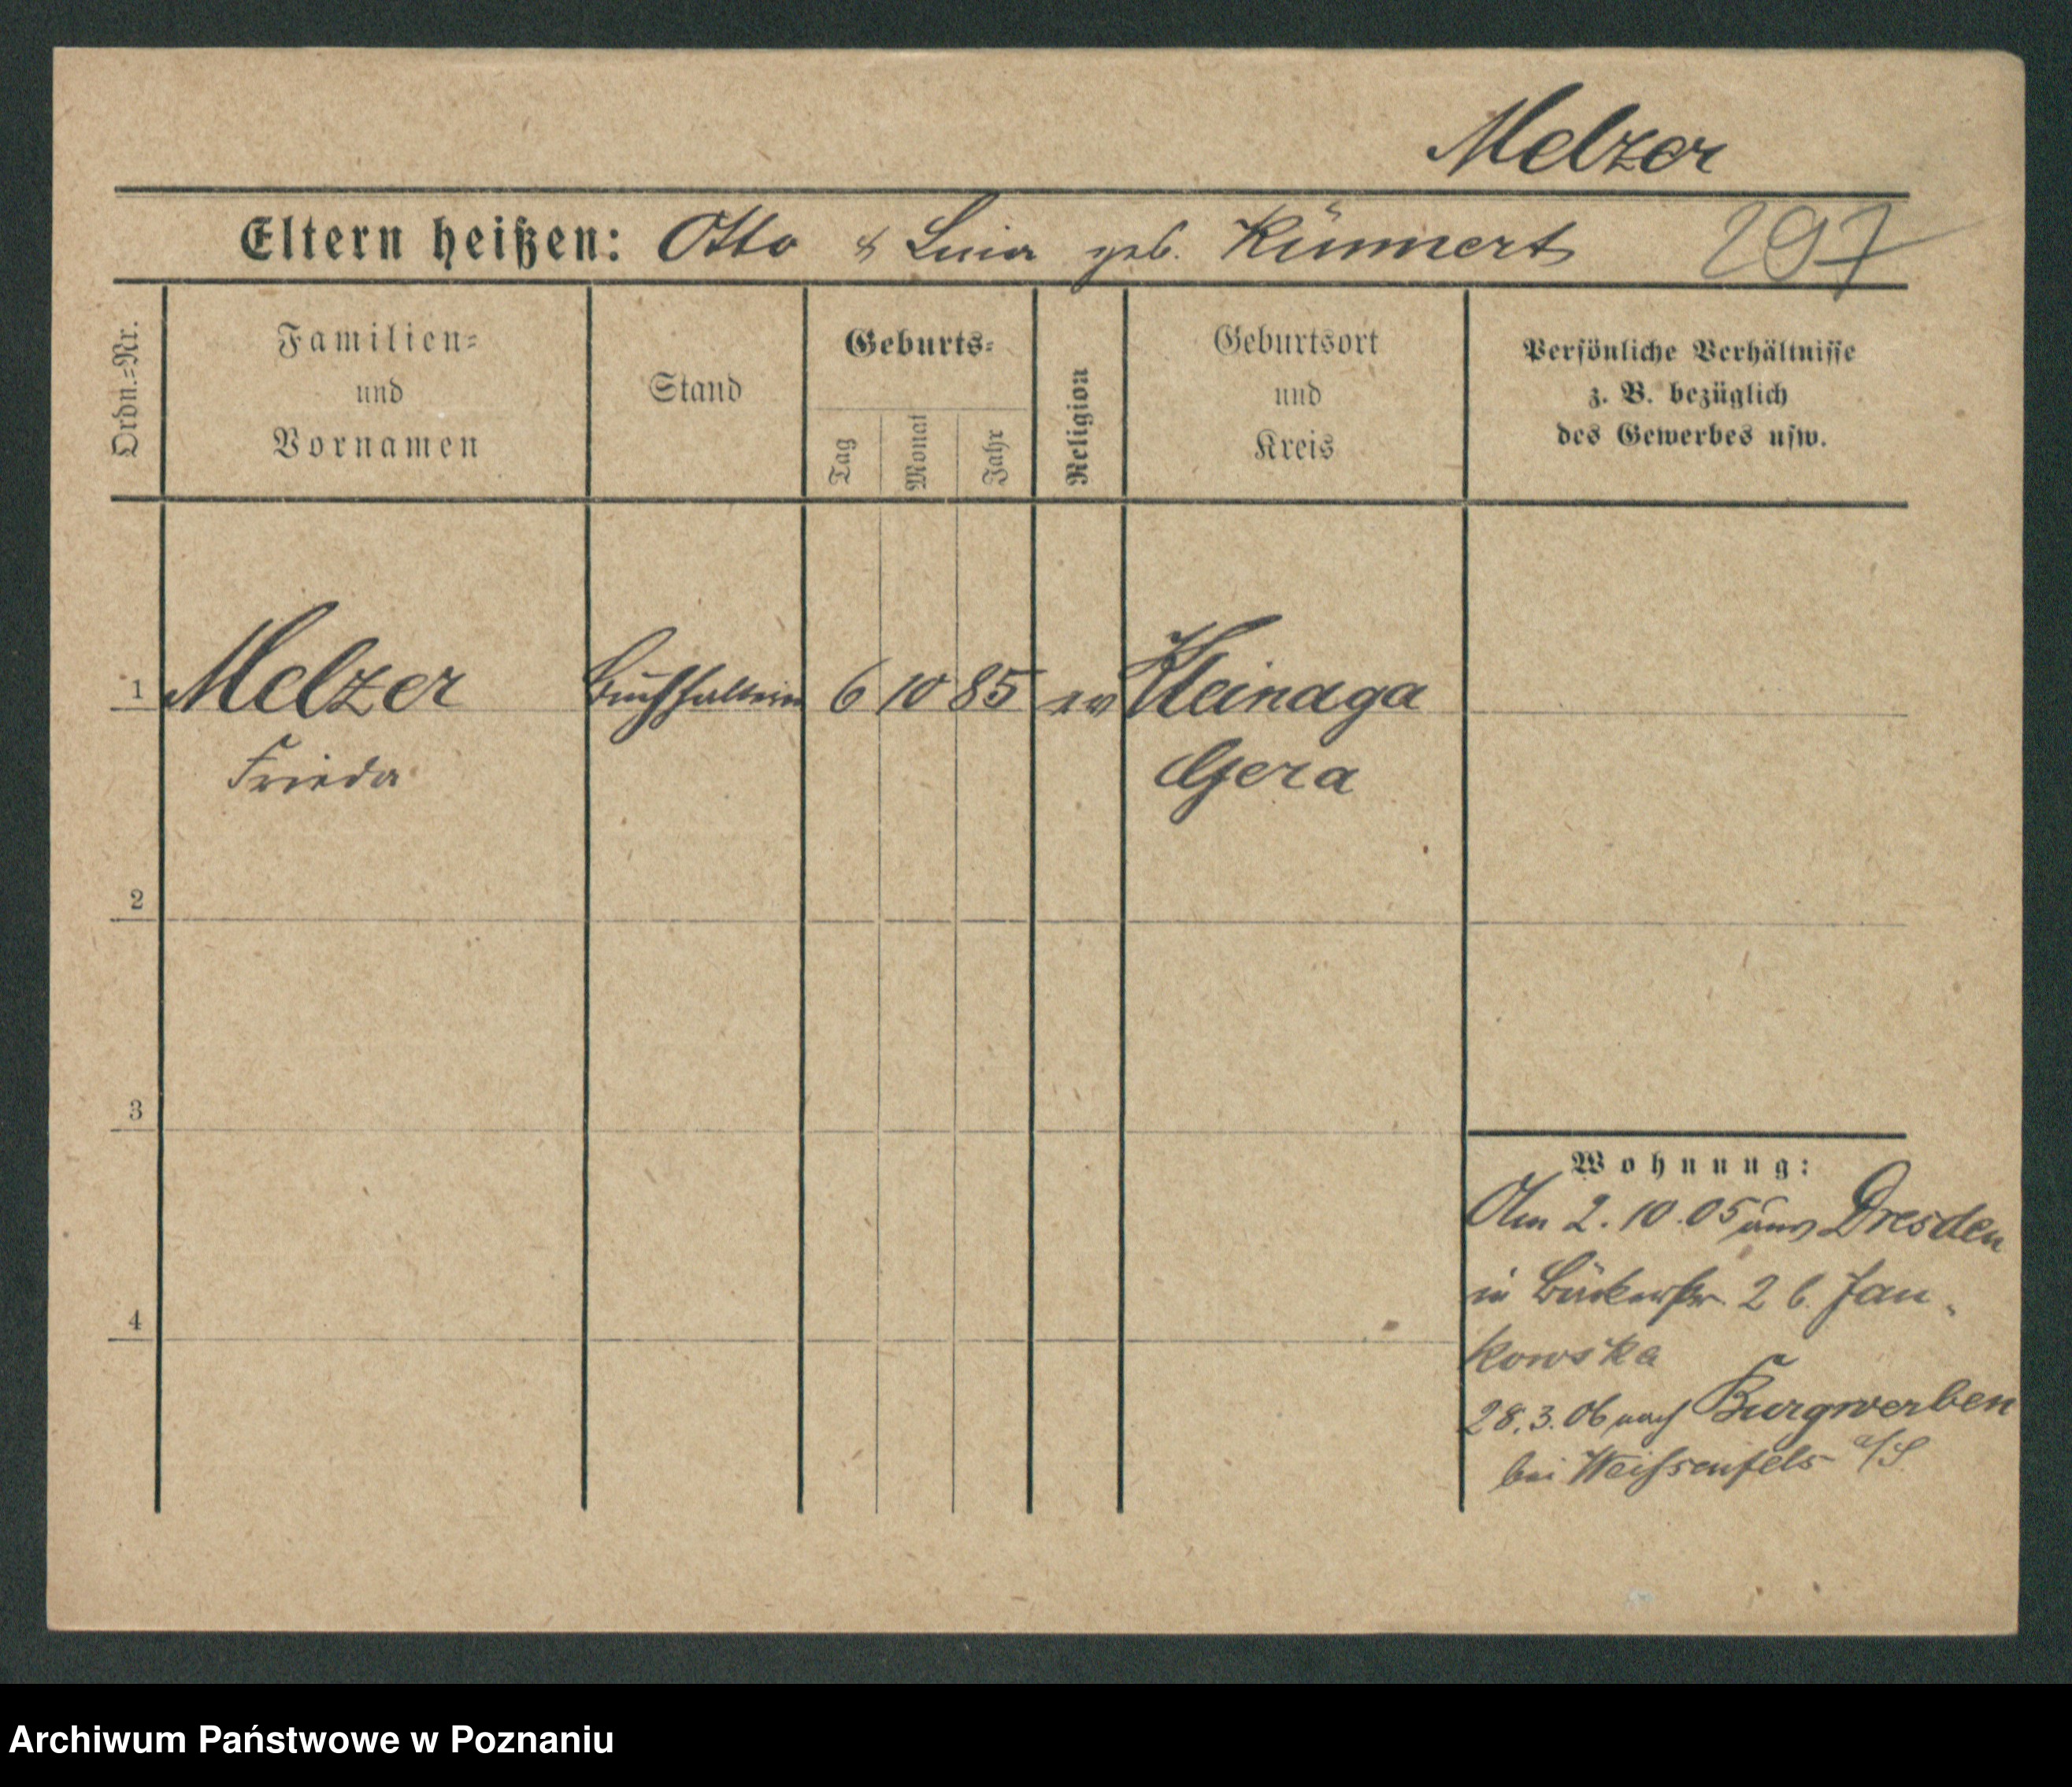 Melzer
Eltern heißen: Otto & Lina geb. Künnert 297
Ordn.-Nr.
Familien-
und
Vornamen
Stand
Geburts-
Tag
Monat
Jahr
Religion
Geburtsort
und
Kreis
Persönliche Verhältnisse
z. B. bezüglich
des Gewerbes usw.
1 Melzer Buchhalterin 6 10 85 ev Kleinaga
Frieda Gera
2
3
4
Wohnung:
Am 2.10.05 aus Dresden
in Bäckerstr. 2 b. Jan-
kowska
28.3.06 nach Burgwerben
bei Weissenfels a/S
Archiwum Państwowe w Poznaniu